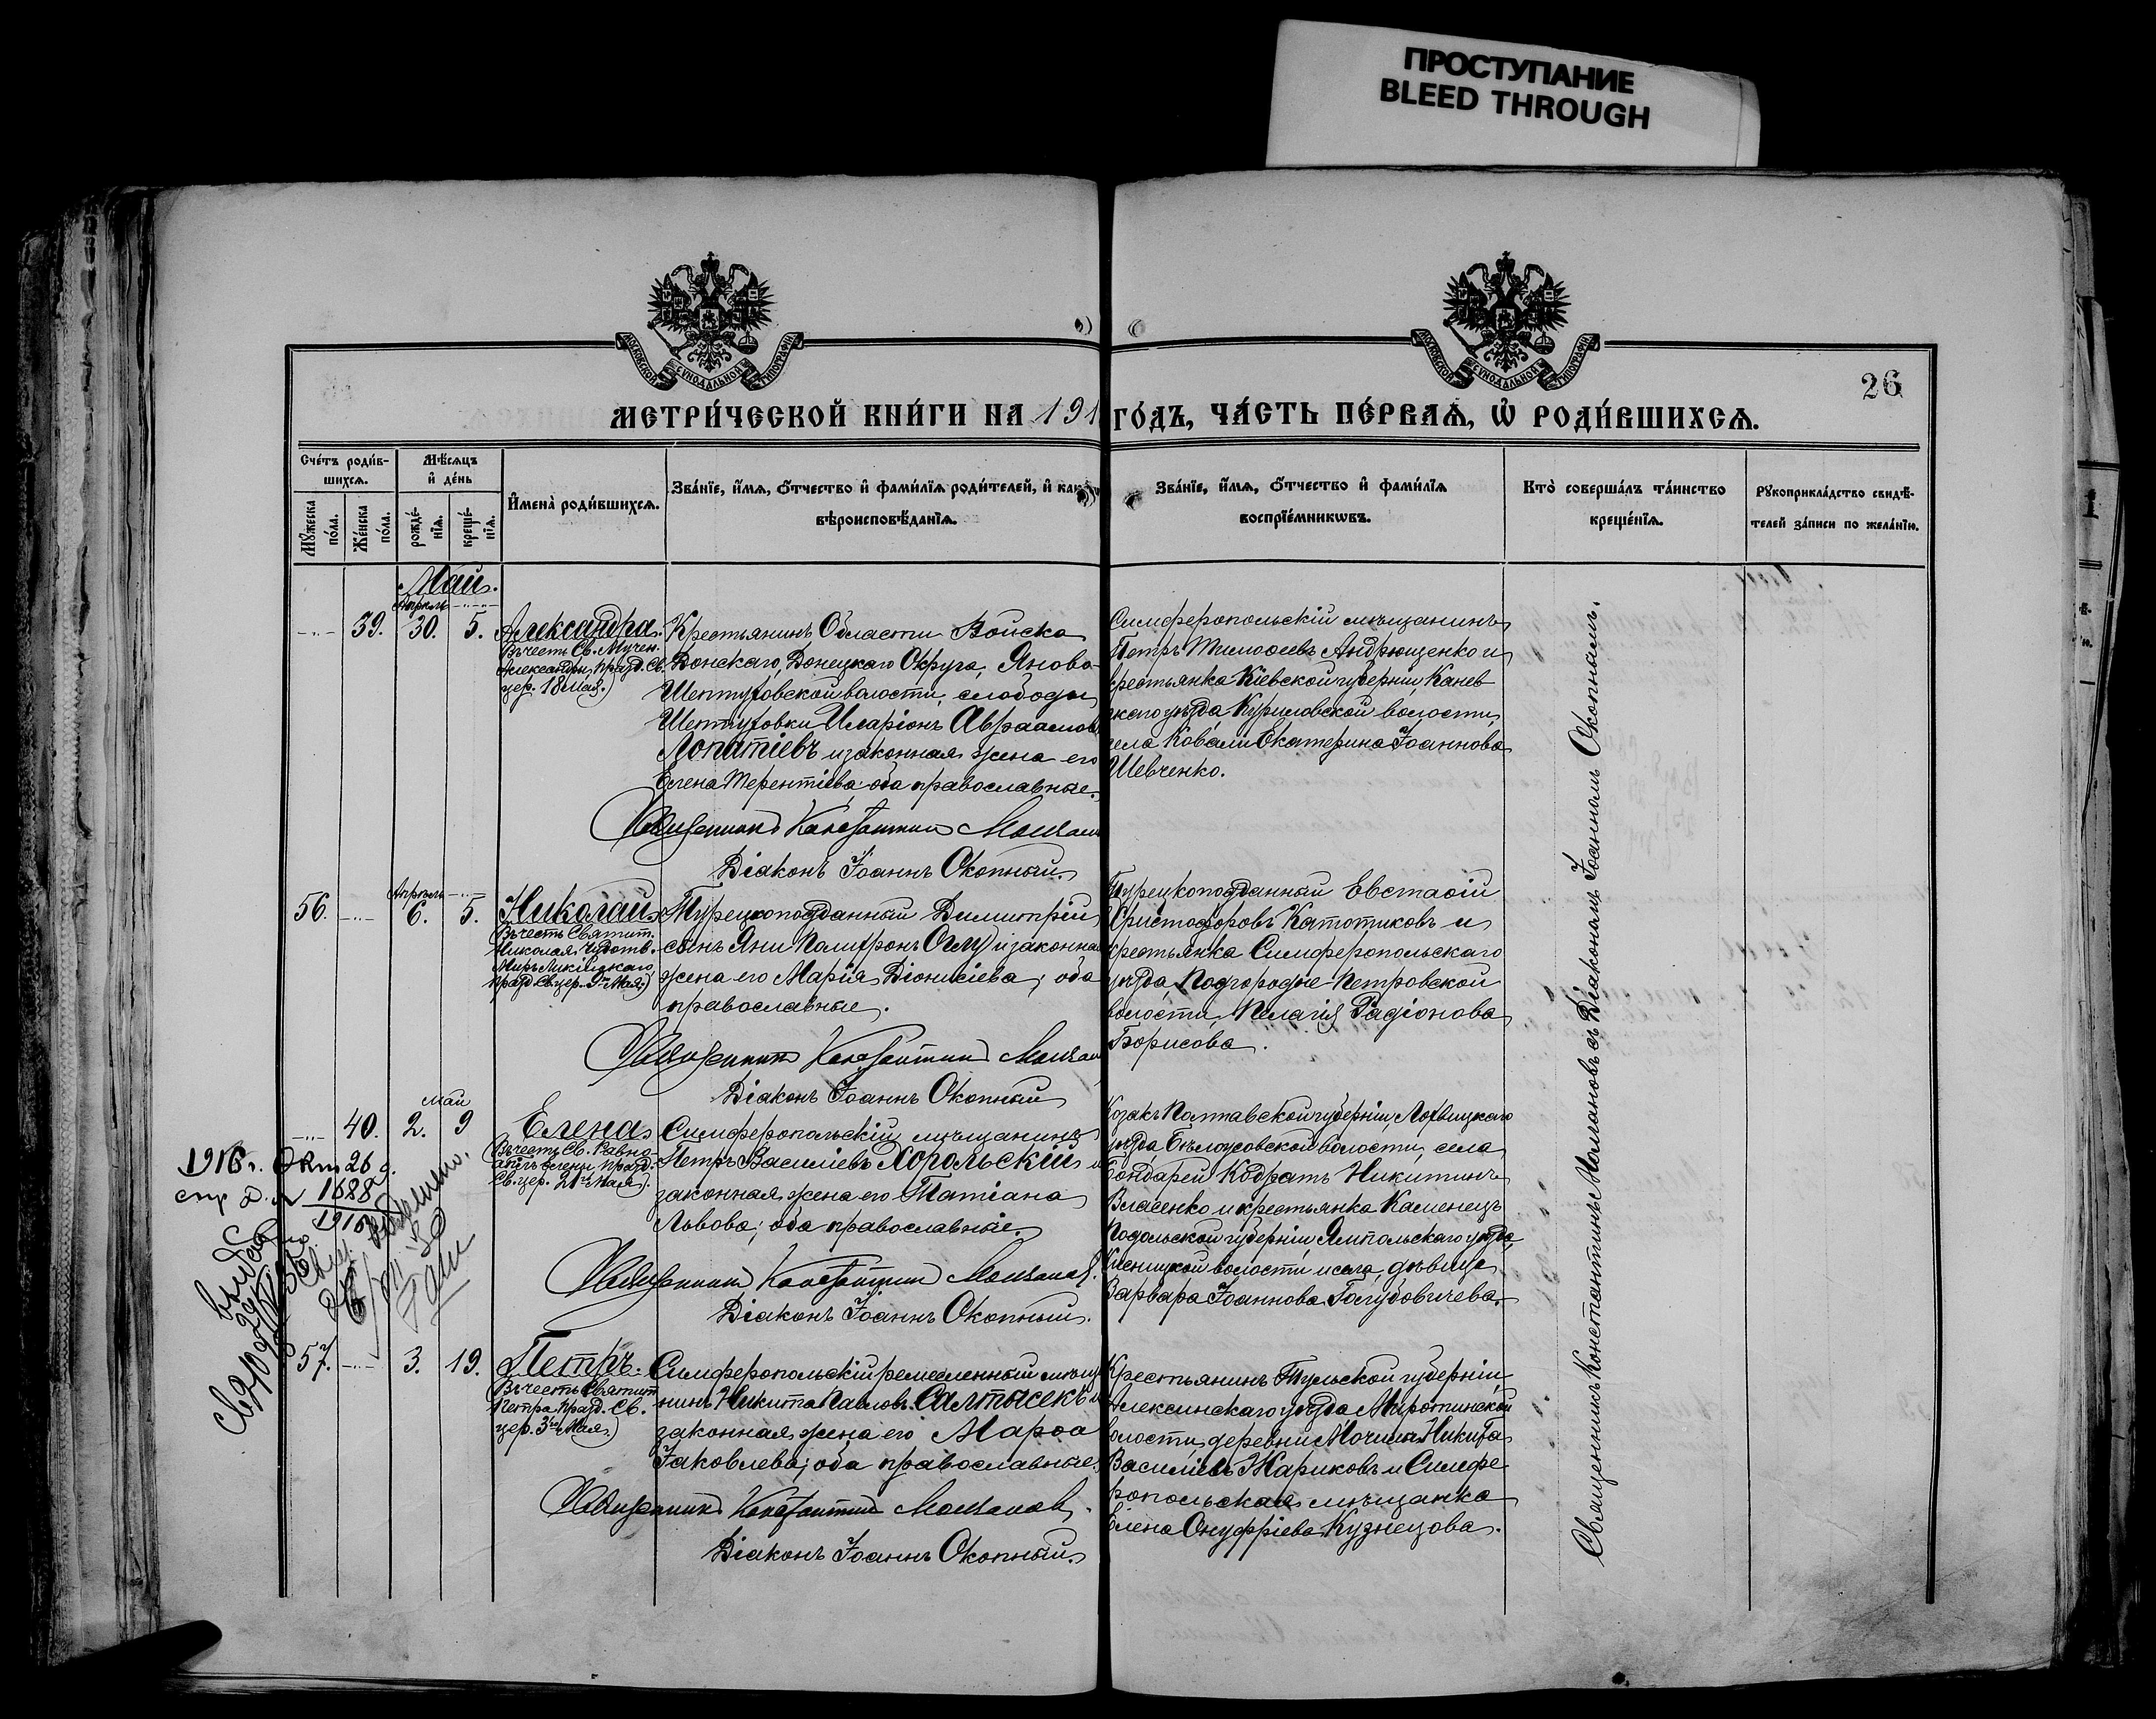 ПРОСТУПАНИЕ
BLEED THROUGH
МОСКОВСКОЙ СѴНОДАЛЬНОЙ ТИПОГРАФІИ
МОСКОВСКОЙ СѴНОДАЛЬНОЙ ТИПОГРАФІИ
26
МЕТРИ́ЧЕСКОЙ КНИ́ГИ НА 191 ГО́ДЪ, ЧА́СТЬ ПЕ́РВАѦ, Ѡ҆ РОДИ́ВШИХСѦ.
Сче́тъ роди́в-
шихсѧ.
Мꙋ́жеска
по́ла.
Же́нска
по́ла.
Мѣ́сѧцъ
и҆ де́нь
рожде́-
нїѧ.
креще́-
нїѧ.
И҆мена̀ роди́вшихсѧ.
Зва́нїе, и҆́мѧ, ѻ҆́тчество и҆ фами́лїѧ роди́телей, и҆ как
вѣроисповѣ́данїѧ.
Зва́нїе, и҆́мѧ, ѻ҆́тчество и҆ фами́лїѧ
воспрїе́мникѡвъ.
Кто̀ соверша́лъ та́инство
креще́нїѧ.
Рꙋкоприкла́дство свидѣ́-
телей за́писи по жела́нїю.
Май.
Апрѣль
39. 30. 5.
Александра.
Въ честь Св. Мучен.
Александры, празд. Св.
цер. 18 мая.)
Крестьянинъ Области Войска
Донскаго, Донецкаго Округа, Яново-
Шептуховской волости, слободы
Шептуховки Иларіонъ Авраамов
Лопатіевъ и законная жена его
Елена Терентіева: оба православные.
Священникъ Константинъ Молчан
Діаконъ Іоаннъ Окопный.
Симферопольскій мѣщанинъ
Петръ Тимоѳеевъ Андрющенко и
крестьянка Кіевской губерніи, Канев
скаго уѣзда Куриловской волости,
села Ковали Екатерина Іоаннова
Шевченко.
Апрѣль
56. 6. 5.
Николай
Въ честь Святит.
Николая Чудотв.
Мирликійскаго,
празд. Св. цер. 9го Мая.)
Турецкоподданный Димитрій
сынъ Яни Полихронъ Оглу и законна
жена его Марія Діонисіева; оба
православные.
Священникъ Константинъ Молчан
Діаконъ Іоаннъ Окопный
Турецкоподданный Евстаѳій
Христофоровъ Катотиковъ и
крестьянка Симферопольскаго
уѣзда, Подгородне-Петровской
волости, Пелагія Радіонова
Борисова.
май
40. 2. 9
Елена
Въ честь Св. Равно-
апост. Елены, празд.
Св. цер. 21го мая).
Симферопольскій мѣщанинъ
Петръ Василіевъ Хорольскій и
законная жена его Татіана
Львова; оба православные.
Священникъ Константинъ Молчановъ.
Діаконъ Іоаннъ Окопный.
Козакъ Полтавской губерніи, Лохвицкаго
уѣзда, Бѣлоусовской волости, села
Бондарей Кодратъ Никитинъ
Власенко и крестьянка Каменецъ
Подольской губерніи, Ямпольскаго уѣзда,
волости и села, дѣвица
Варвара Іоаннова Голубовичева.
1916 г. Окт 26 д.
1688
1916
57. 3. 19.
Петръ.
Въ честь Святит.
Петра, празд. Св.
цер. 3го Мая.)
Симферопольскій ремесленный мѣща
нинъ Никита Павловъ Салтысекъ и
законная жена его Марѳа
Іаковлева; оба православные.
Священникъ Константинъ Молчановъ.
Діаконъ Іоаннъ Окопный.
Крестьянинъ Тульской губерніи,
Алексинскаго уѣзда Миротинской
волости, деревни Мочилъ Никита
Василіевъ Жариковъ и Симфе
ропольская мѣщанка
Елена Онуфріева Кузнецова.
Священникъ Константинъ Молчановъ съ Діакономъ Іоанномъ Окопнымъ.